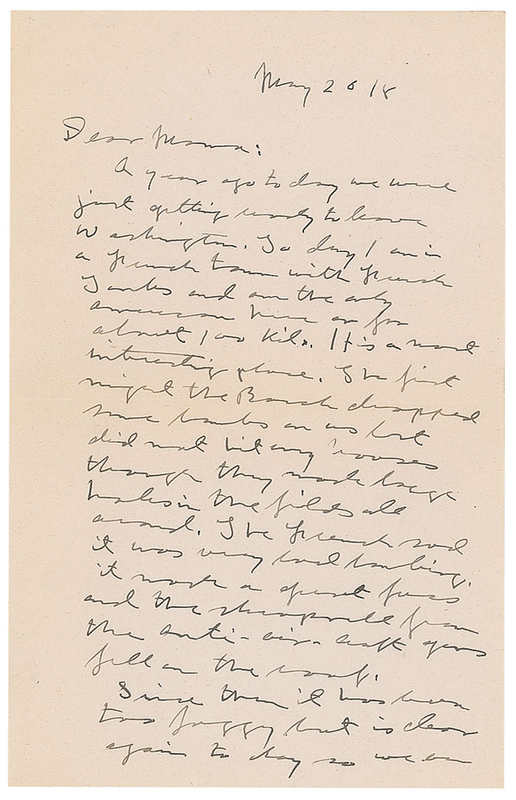 May 26 18
Dear Mama:
A year ago to day we were
just getting ready to leave
Washington. To day I am in
a french town with french
Tanks and am the only
american here or for
about 100 Kil. It is a most
interesting place. The first
night the Bosch dropped
some bombs on us but
did not hit any houses
though they made large
holes in the fields all
around. The french said
it was very bad bombing.
it made a great fuss
and the shrapnell from
the anti-air-craft guns
fell on the roof.
Since then it has been
too foggy but is clear
again to day so we are